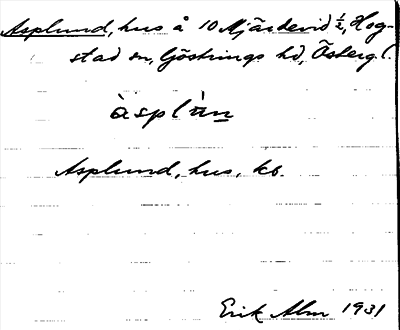 Asplund, hus å 10 Mjärdevid ½, Hog-
stad sn, Göstrings hd, Österg.l.
àsplàn
Asplund, hus, kb.
Erik Alm 1931